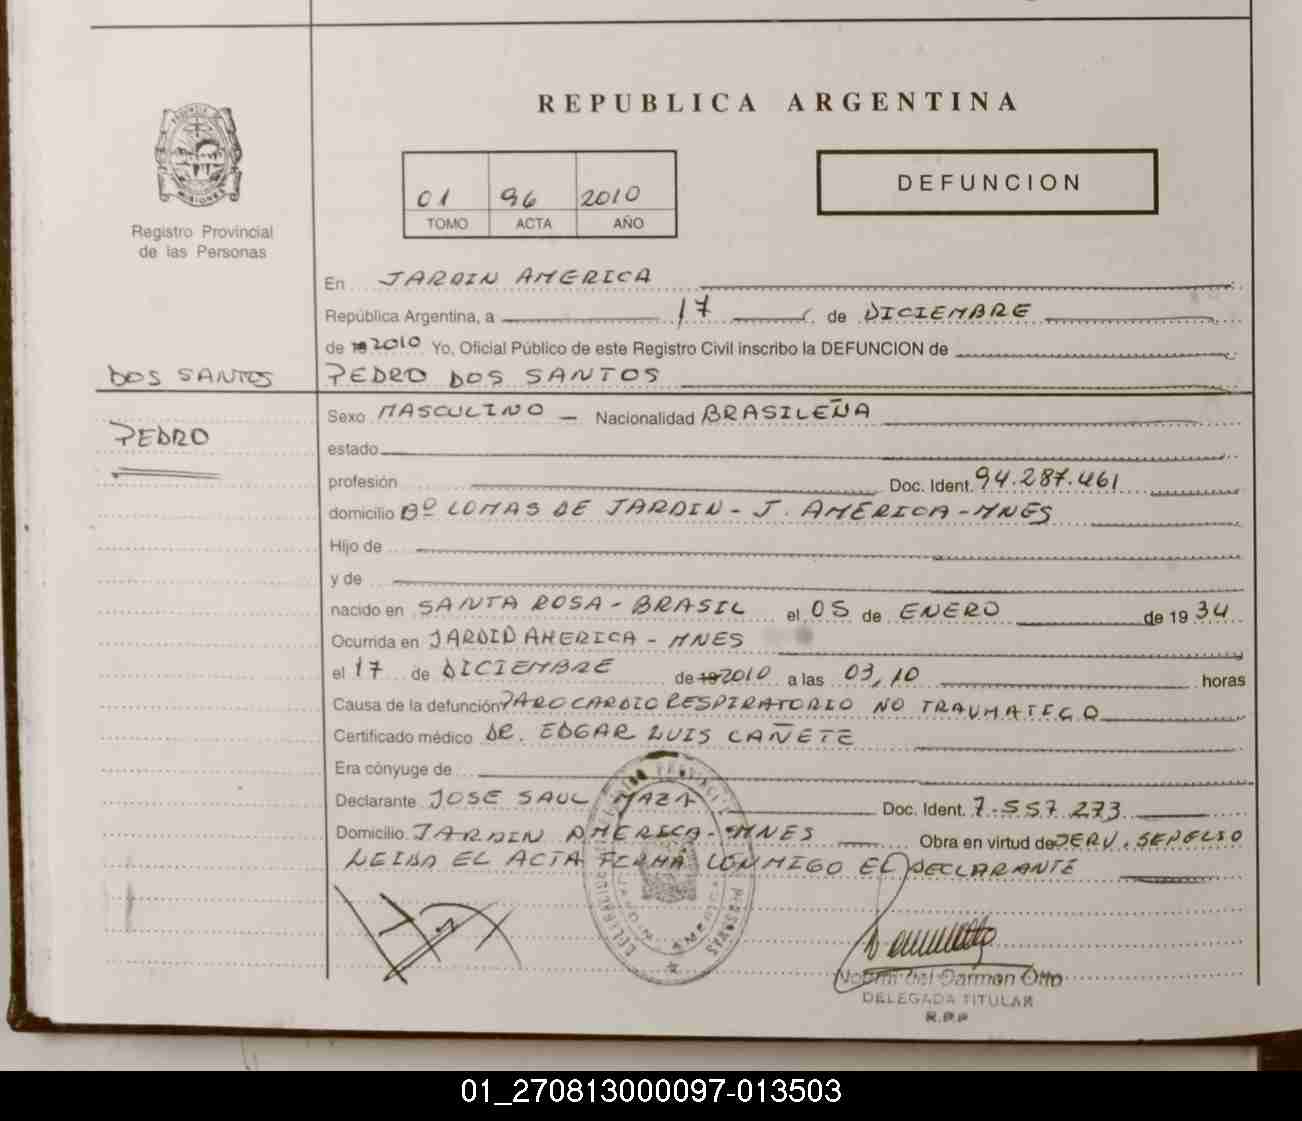 REPUBLICA ARGENTINA
01 96 2010
TOMO ACTA AÑO
DEFUNCION
MISIONES
Registro Provincial
de las Personas
En JARDIN AMERICA
República Argentina, a 17 de DICIEMBRE
de 2010 Yo, Oficial Público de este Registro Civil inscribo la DEFUNCION de
DOS SANTOS
PEDRO DOS SANTOS
PEDRO
Sexo MASCULINO - Nacionalidad BRASILEÑA
estado
profesión Doc. Ident. 94.287.461
domicilio Bº LOMAS DE JARDIN - J. AMERICA - MNES
Hijo de
y de
nacido en SANTA ROSA - BRASIL el 05 de ENERO de 1934
Ocurrida en JARDID AMERICA - MNES
el 17 de DICIEMBRE de 19 2010 a las 03,10 horas
Causa de la defunción PARO CARDIO RESPIRATORIO NO TRAUMATICO
Certificado médico DR. EDGAR LUIS CAÑETE
Era cónyuge de
Declarante JOSE SAUL MAZA Doc. Ident. 7.557.273
Domicilio JARDIN AMERICA - MNES Obra en virtud de SERV. SEPELIO
LEIDA EL ACTA FIRMA CONMIGO EL DECLARANTE
JARDIN AMERICA
MISIONES
del Carmen Otto
DELEGADA TITULAR
R.P.P
01_270813000097-013503